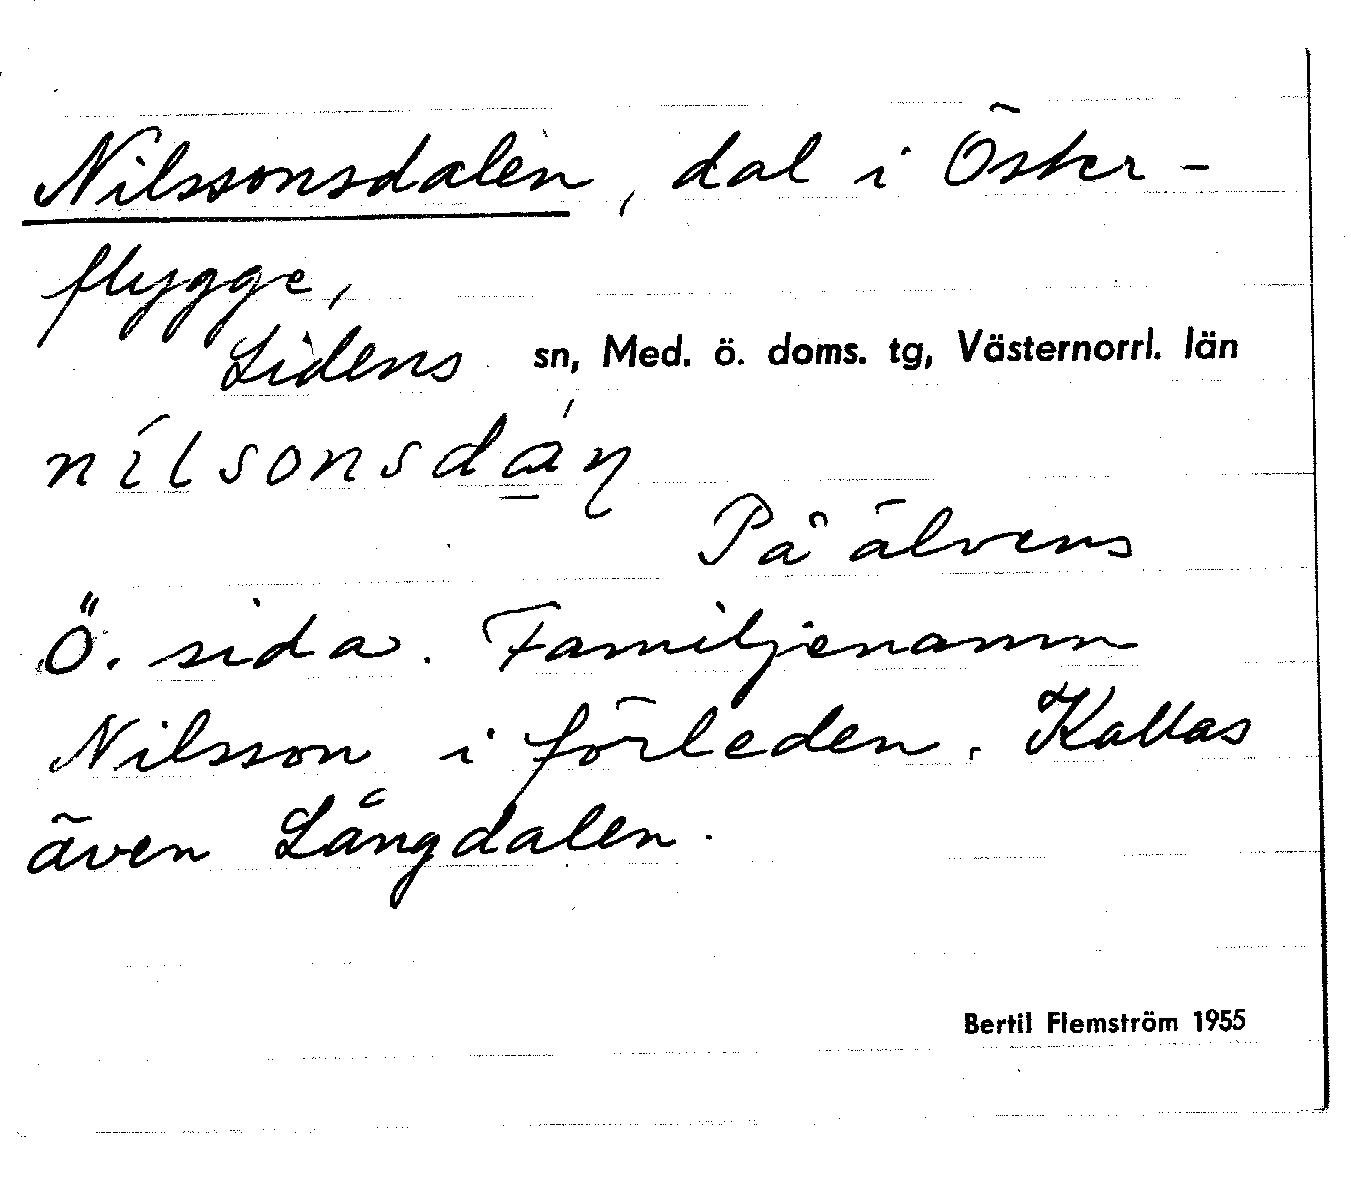 Nilssonsdalen, dal i Öster-
flygge,
Lidens sn, Med. ö. doms. tg, Västernorrl. län
nílsonsdа̱́ŋ
På älvens
Ö. sida. Familjenamn
Nilsson i förleden. Kallas
även Långdalen.
Bertil Flemström 1955